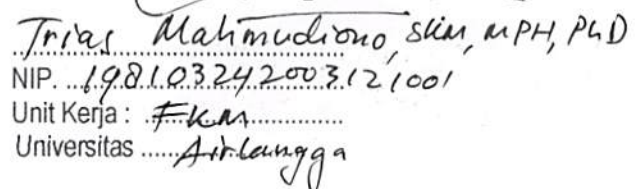 Trias Mahmudiono, SKM, MPH, PhD
NIP. 198103242003121001
Unit Kerja : FKM
Universitas ...... Airlangga